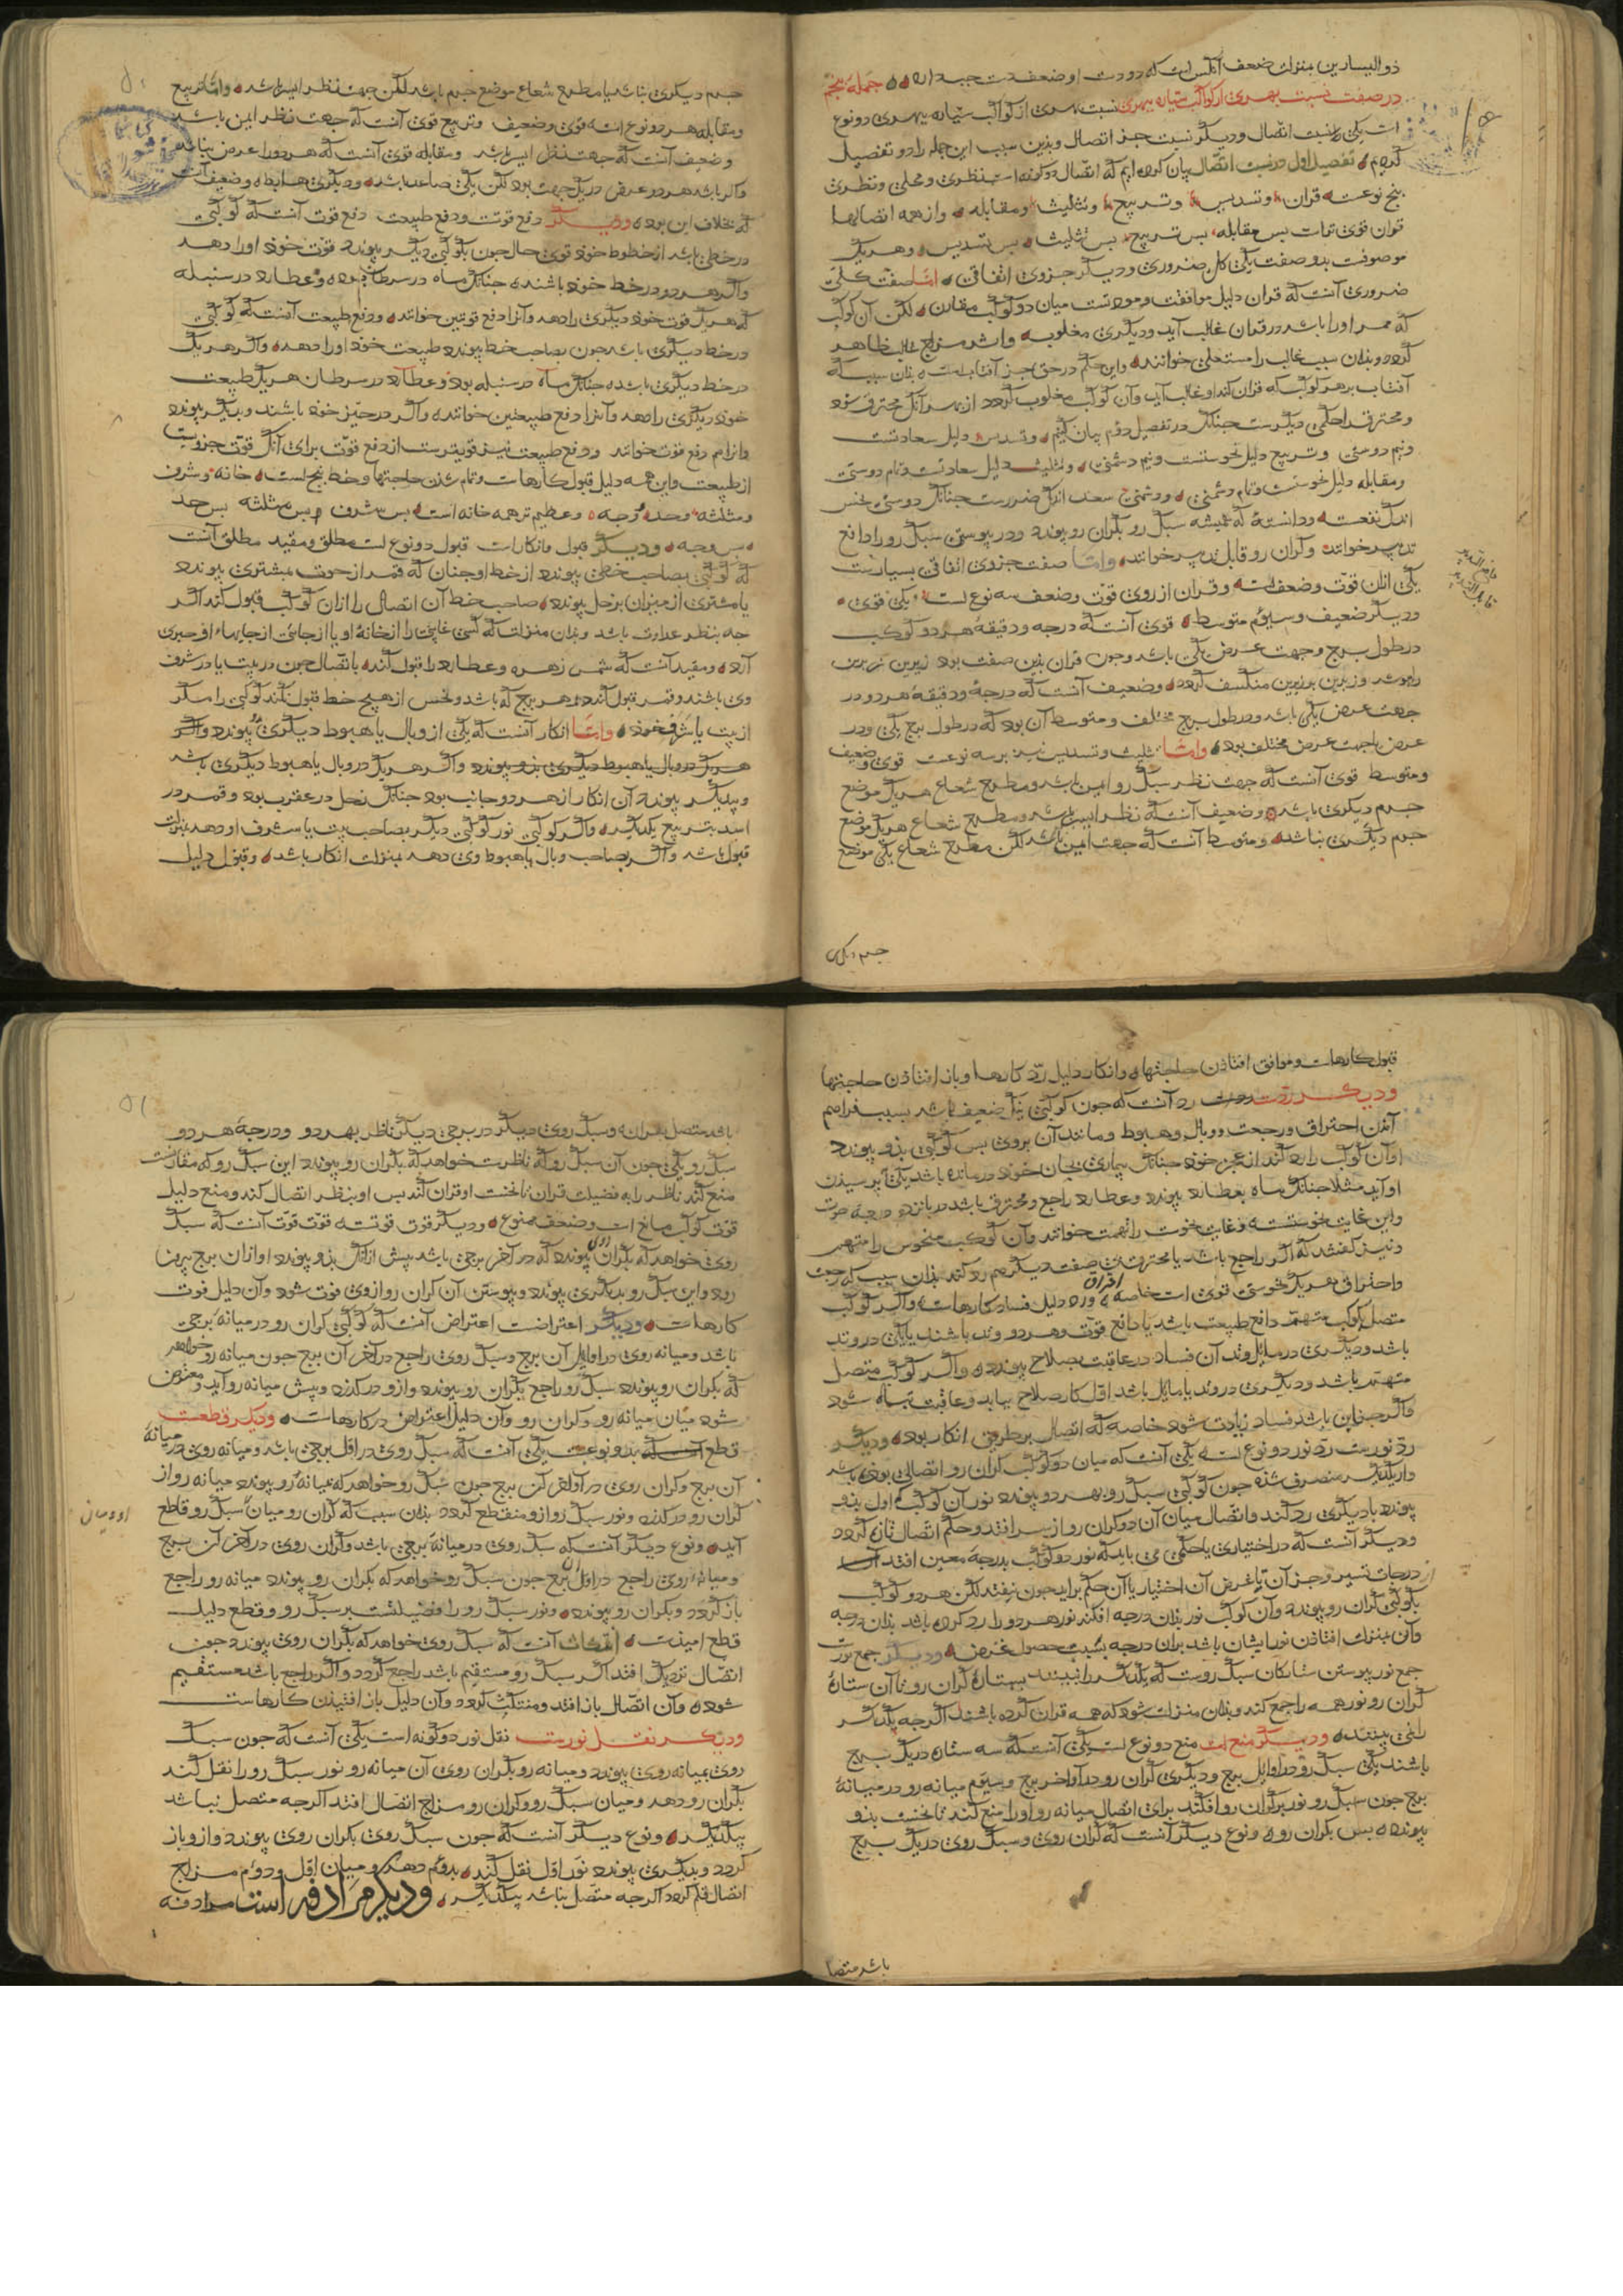 ذو الیسارین بمنزلت ضعف آنکس است که دو دست او ضعف دست چپ دارد جمله پنجم
در صفت نسبت بهری از کواکب سیاره ببهری نسبت بهری از کواکب سیاره ببهری دو نوع
است یکی نسبت اتصال و دیگر نسبت جز اتصال و بدین سبب این جمله را دو تفصیل
کردیم تفصیل اول در نسبت اتصال بیان کرده ایم که اتصال دو گونه است نظری و محلی و نظری
پنج نوعست قران و تسدیس و تربیع و تثلیث و مقابله و از همه اتصالها
قران قوی ترست پس مقابله پس تربیع پس تثلیث پس تسدیس و هر یک
موصوفست بدو صفت یکی کلی ضروری و دیگر جزوی اتفاقی اما صفت کلی
ضروری آنست که قران دلیل موافقت و مودتست میان دو کوکب مقارن لکن آن کوکب
که ممر او را باشد در قران غالب آید و دیگری مغلوب و اثر مزاج غالب ظاهر
گردد و بدان سبب غالب را مستعلی خوانند و این حکم در حق جز آفتابست بدان سبب که
آفتاب بر هر کوکب که قران کند او غالب آید و آن کوکب مغلوب گردد از بهر آنک محترق شود
و محترق را حکمی دیگرست چنانک در تفصیل دوم بیان کنیم و تسدیس دلیل سعادتست
و نیم دوستی و تربیع دلیل نحوستست و نیم دشمنی و تثلیث دلیل سعادتست و تمام دوستی
و مقابله دلیل نحوستست و تمام دشمنی و دشمنی سعد اندک ضررست چنانک دوستی نحس
اندک نفعست و دانسته که همیشه سبک رو بگران رو پیوندد و در پیوستن سبک رو را دافع
تدبیر خوانند و گران رو قابل تدبیر خوانند و اما صفت جزوی اتفاقی بسیارست
یکی ازان قوت و ضعفست و قران از روی قوت و ضعف سه نوع است یکی قوی
و دیگر ضعیف و سیوم متوسط قوی آنست که درجه و دقیقه هر دو کوکب
در طول برج و جهت عرض یکی باشد و چون قران بدین صفت بود زیرین زبرین
را بپوشد و زبرین بزیرین منکسف گردد و ضعیف آنست که درجه و دقیقه هر دو در
جهت عرض یکی باشد و در طول برج مختلف و متوسط آن بود که در طول برج یکی و در
عرض یا جهت عرض مختلف بود و اما تثلیث و تسدیس نیز بر سه نوعست قوی و ضعیف
و متوسط قوی آنست که جهت نظر سبک رو ایمن باشد و مطرح شعاع هر یک موضع
جرم دیگری باشد و ضعیف آنست که نظر ایسر باشد و مطرح شعاع هر یک موضع
جرم دیگری نباشد و متوسط آنست که جهت ایمن باشد لکن مطرح شعاع یکی موضع
جرم دیگری
قابل التدبیر
جرم دیگری نباشد یا مطرح شعاع موضع جرم باشد لکن جهت نظر ایسر باشد و اما تربیع
و مقابله هر دو نوع است قوی و ضعیف و تربیع قوی آنست که جهت نظر ایمن باشد
و ضعیف آنست که جهت نظر ایسر باشد و مقابله قوی آنست که هر دو را عرض نباشد
و اگر باشد هر دو عرض در یک جهت بود لکن یکی صاعد باشد و دیگری هابط و ضعیف آنست
که بخلاف این بود و دیگر دفع قوتست و دفع طبیعت دفع قوت آنست که کوکبی
در خطی باشد از خطوط خود قوی حال چون بکوکبی دیگر پیوندد قوت خود او را دهد
و اگر هر دو در خط خود باشند چنانک ماه در سرطان بود و عطارد در سنبله
که هر یک قوت خود دیگری را دهد و آنرا دفع قوتین خوانند و دفع طبیعت آنست که کوکبی
در خط دیگری باشد چون بصاحب خط پیوندد طبیعت خود او را دهد و اگر هر یک
در خط دیگری باشد چنانک ماه در سنبله بود و عطارد در سرطان هر یک طبیعت
خود دیگری را دهد و آنرا دفع طبیعتین خوانند و اگر در حیز خود باشند و بدیگر پیوندد
و انرا هم دفع قوت خوانند و دفع طبیعت نیز قویترست از دفع قوت برای آنک قوت جزویست
از طبیعت و این همه دلیل قبول کارهاست و تمام شدن حاجتها و خط پنج است خانه و شرف
و مثلثه و حد و وجه و عظیم تر همه خانه است پس شرف و پس مثلثه پس حد
پس وجه و دیگر قبول و انکارست قبول دو نوع است مطلق و مقید مطلق آنست
که کوکبی بصاحب خطی پیوندد از خط او چنان که قمر از حوت بمشتری پیوندد
یا مشتری از میزان بزحل پیوندد صاحب خط آن اتصال را ازان کوکب قبول کند اگر
چه بنظر عداوت باشد و بدان منزلت که کسی غایبی را از خانه او یا از جائی از جایهاء او خبری
آرد و مقید آنست که شمس زهره و عطارد را قبول کند باتصال چون در بیت یا در شرف
وی باشند و قمر قبول کند بهر برج که باشد و نحس از هیچ خط قبول نکند کوکبی را مگر
از بیت یا شرف خود و اما انکار آنست که یکی از وبال یا هبوط دیگری بدو پیوندد و اگر
هر یک در وبال یا هبوط دیگری بدو پیوندد و اگر هر یک در وبال یا هبوط دیگری باشد
و بیکدیگر پیوندد آن انکار از هر دو جانب بود چنانک زحل در عقرب بود و قمر در
اسد بتربیع یکدیگر و اگر کوکبی نور کوکبی دیگر بصاحب بیت یا شرف او دهد بمنزلت
قبول باشد و اگر بصاحب وبال یا هبوط وی دهد بمنزلت انکار باشد و قبول دلیل
قبول کارهاست و موافق افتادن حاجتها و انکار دلیل رد کارها و باز افتادن حاجتها
و دیگر ردست رد آنست که چون کوکبی ضعیف باشد بسبب فراهم
آمدن احتراق و رجعت و وبال و هبوط و مانند آن بروی پس کوکبی بدو پیوندد
او آن کوکب را رد کند از عجز خود چنانک بیماری بجان خود درمانده باشد یکی بپرسیدن
او آید مثلا چنانک ماه بعطارد پیوندد و عطارد راجع و محترق باشد در پانزده درجه حوت
و این غایت نحوستست و غایت نحوست را تهمت خوانند و آن کوکب منحوس را متهم
و نیز گفتند که اگر راجع باشد یا محترق بی صفت دیگر هم رد کند بدان سبب که رجعت
و احتراق هر یک نحوستی قوی است خاصه و رد دلیل فساد کارهاست و اگر کوکب
متصل کوکب متهم دافع طبیعت باشد یا دافع قوت و هر دو در وتد باشند یا یکی در وتد
باشد و دیگری در مایل وتد آن فساد در عاقبت بصلاح پیوندد و اگر کوکب متصل
متهم باشد و دیگری در وتد یا مایل باشد اول کار صلاح یابد و عاقبت تباه شود
و اگر جز این باشد فساد زیادت شود خاصه که اتصال بر طریق انکار بود و دیگر
رد نورست رد نور دو نوع است یکی آنست که میان دو کوکب گران رو اتصالی بوده باشد
و از یکدیگر منصرف شده چون کوکبی سبک رو بهر دو پیوندد نور آن کوکب که اول بدو
پیوندد بدیگری رد کند و اتصال میان آن دو گران رو از سر افتد و حکم اتصال تازه گردد
و دیگر آنست که در اختیاری یا حکمی می باید که نور دو کوکب بدرجه معین افتد
از درجات تسییر و جز آن تا غرض آن اختیار یا آن حکم براید چون نیفتد لکن هر دو کوکب
بکوکبی گران رو پیوندد و آن کوکب نور بدان درجه افکند نور هر دو را رد کرده باشد بدان درجه
و آن بمنزلت افتادن نور ایشان باشد بران درجه بسبب حصول غرض و دیگر جمع نورست
جمع نور پیوستن ستارگان سبک روست که یکدیگر را نبینند بستاره گران رو تا آن ستاره
گران رو نور همه را جمع کند و بدان منزلت شود که همه قران کرده باشند اگر چه یکدیگر
را نمی بینند و دیگر منع است منع دو نوع است یکی آنست که سه ستاره در یک برج
باشند یکی سبک رو در اوایل برج و دیگری گران رو در اواخر برج و سیوم میانه رو در میانه
برج چون سبک رو نور بر گران رو افکند برای اتصال میانه رو او را منع کند تا نخست بدو
پیوندد پس بگران رو و نوع دیگر آنست که گران روی و سبک روی در یک برج
باشد متصل
باشد متصل بقران و سبک روی دیگر در برجی دیگر ناظر بهر دو و درجه هر دو
سبک رو یکی چون آن سبک رو که ناظرست خواهد که بگران رو پیوندد این سبک رو که مقارنست
منع کند ناظر را به فضیلت قران تا نخست او قران کند پس او بنظر اتصال کند و منع دلیل
قوت کوکب مانع است و ضعف ممنوع و دیگر قوت قوتست قوت قوت آنست که سبک
روی خواهد که بگران روی پیوندد که در آخر برجی باشد پیش ازانک بدو پیوندد او ازان برج بیرون
رود و این سبک رو بدیگری پیوندد و پیوستن آن گران رو از وی فوت شود و آن دلیل فوت
کارهاست و دیگر اعتراضست اعتراض آنست که کوکبی گران رو در میانه برجی
باشد و میانه روی در اوایل آن برج و سبک روی راجع در آخر آن برج چون میانه رو خواهد
که بگران رو پیوندد سبک رو راجع بگران رو پیوندد و ازو در گذرد و پیش میانه رو آید و معترض
شود میان میانه رو و گران رو و آن دلیل اعتراض در کارهاست و دیگر قطعست
قطع بدو نوعست یکی آنست که سبک روی در اول برجی باشد و میانه روی در میانه
آن برج و گران روی در اواخر آن برج چون سبک رو خواهد که بمیانه رو پیوندد میانه رو از
گران رو در گذرد و نور سبک رو ازو منقطع گردد بدان سبب که گران رو میان سبک رو قاطع
آید و نوع دیگر آنست که سبک روی در میانه برجی باشد و گران روی در آخر آن برج
و میانه روی راجع در اول آن برج چون سبک رو خواهد که بگران رو پیوندد میانه رو راجع
باز گردد و بگران رو پیوندد و نور سبک رو را فضیلتست بر سبک رو و قطع دلیل
قطع امیدست انتکاث آنست که سبک روی خواهد که بگران روی پیوندد چون
اتصال نزدیک افتد اگر سبک رو مستقیم باشد راجع گردد و اگر راجع باشد مستقیم
شود و آن اتصال باز افتد و منتکث گردد و آن دلیل باز افتیدن کارهاست
و دیگر نقل نورست نقل نور دو گونه است یکی آنست که چون سبک
روی بمیانه روی پیوندد و میانه رو بگران روی آن میانه رو نور سبک رو را نقل کند
بگران رو دهد و میان سبک رو و گران رو مزاج اتصال افتد اگر چه متصل نباشد
بیکدیگر و نوع دیگر آنست که چون سبک روی بگران روی پیوندد و ازو باز
گردد و بدیگری پیوندد نور اول نقل کند بدوم دهد و میان اول و دوم مزاج
اتصال قایم گردد اگر چه متصل نباشد بیکدیگر و دیگر مرادفه است مرادفه